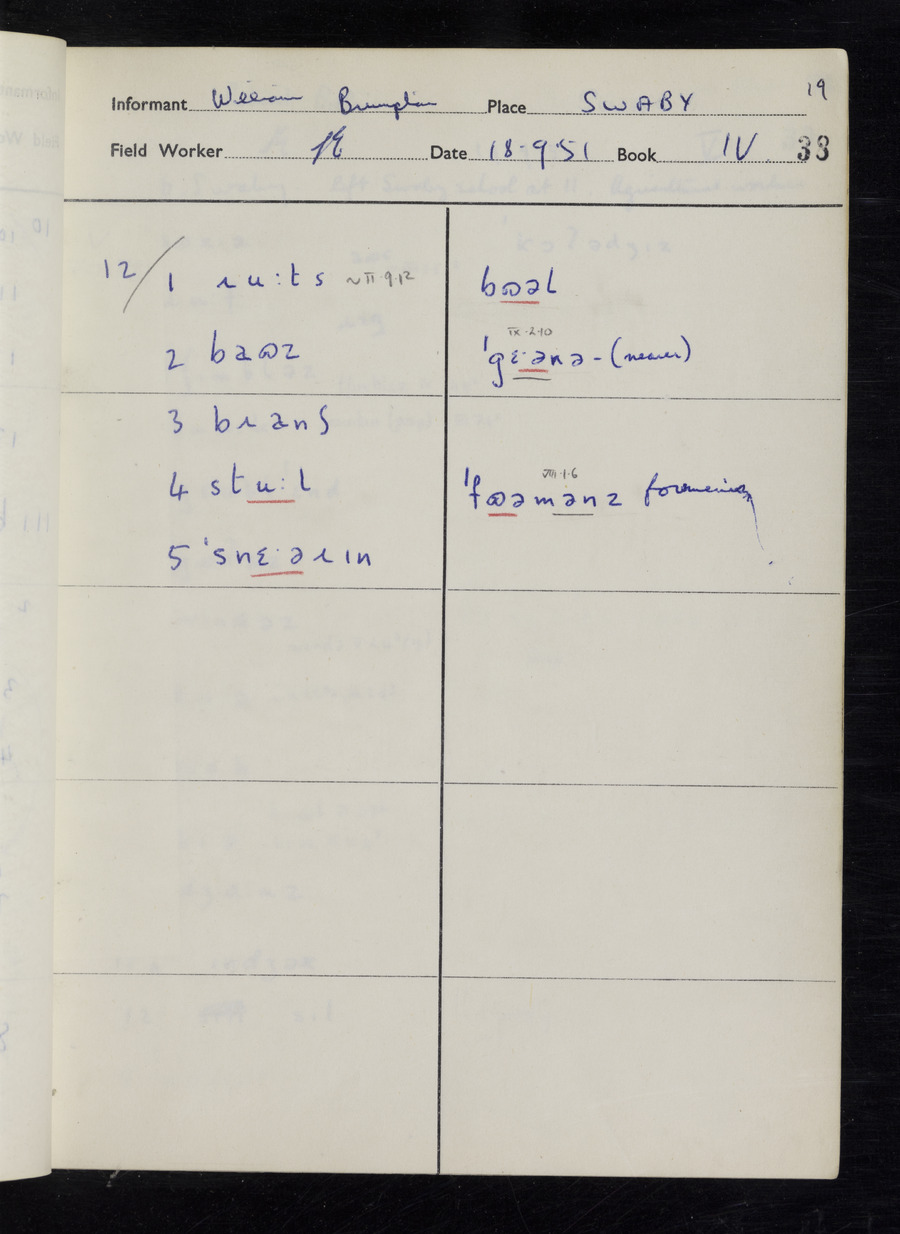 19
Informant William Brumpton Place SWABY
Field Worker PE Date 18·9·51 Book IV 33
12/ 1 ɹuːts ~II·9·12
2 baɷz
3 bɹanʃ
4 stuːl
5 ˈsnɛˑəɹɪn
bɷəl
IX·2·10
ˈgɛˑənə - (nearer)
VIII·1·6
ˈfɷəmənz